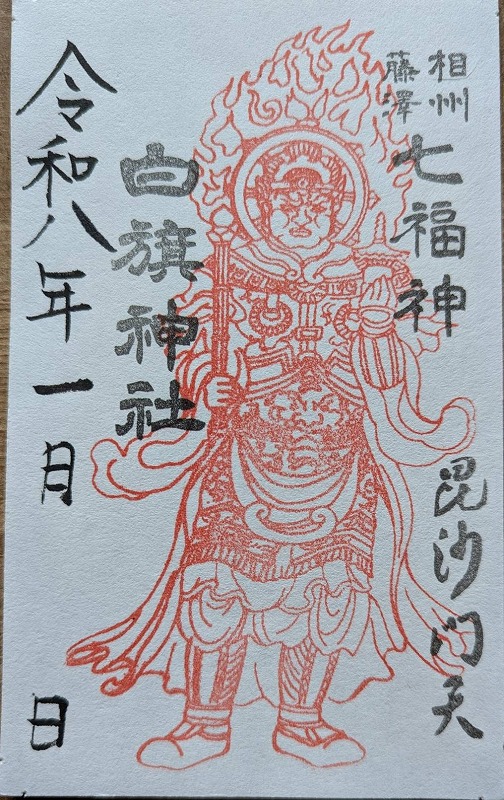 相州
藤澤
七福神
毘沙門天
白旗神社
令和八年一月　日